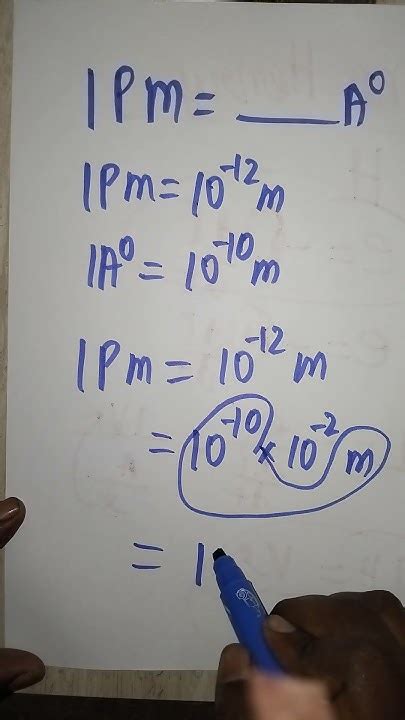 1Pm = ____ A⁰
1Pm = 10⁻¹² m
1A⁰ = 10⁻¹⁰ m
1Pm = 10⁻¹² m
= 10⁻¹⁰ × 10⁻² m
= 1